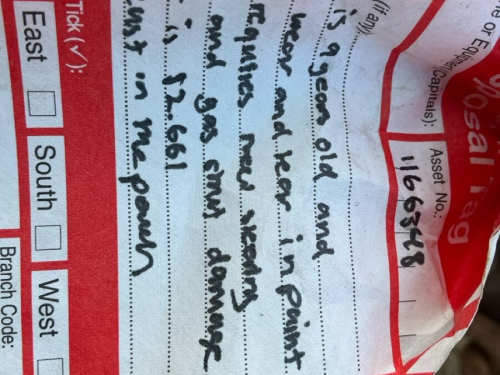 osal Tag
Capitals):
Asset No.:
1166348
(if any).
is 9 years old and
wear and tear in paint
requires new
and gas damage
is $2.661
in the pouch
Tick (✓):
East
South
West
Branch Code: